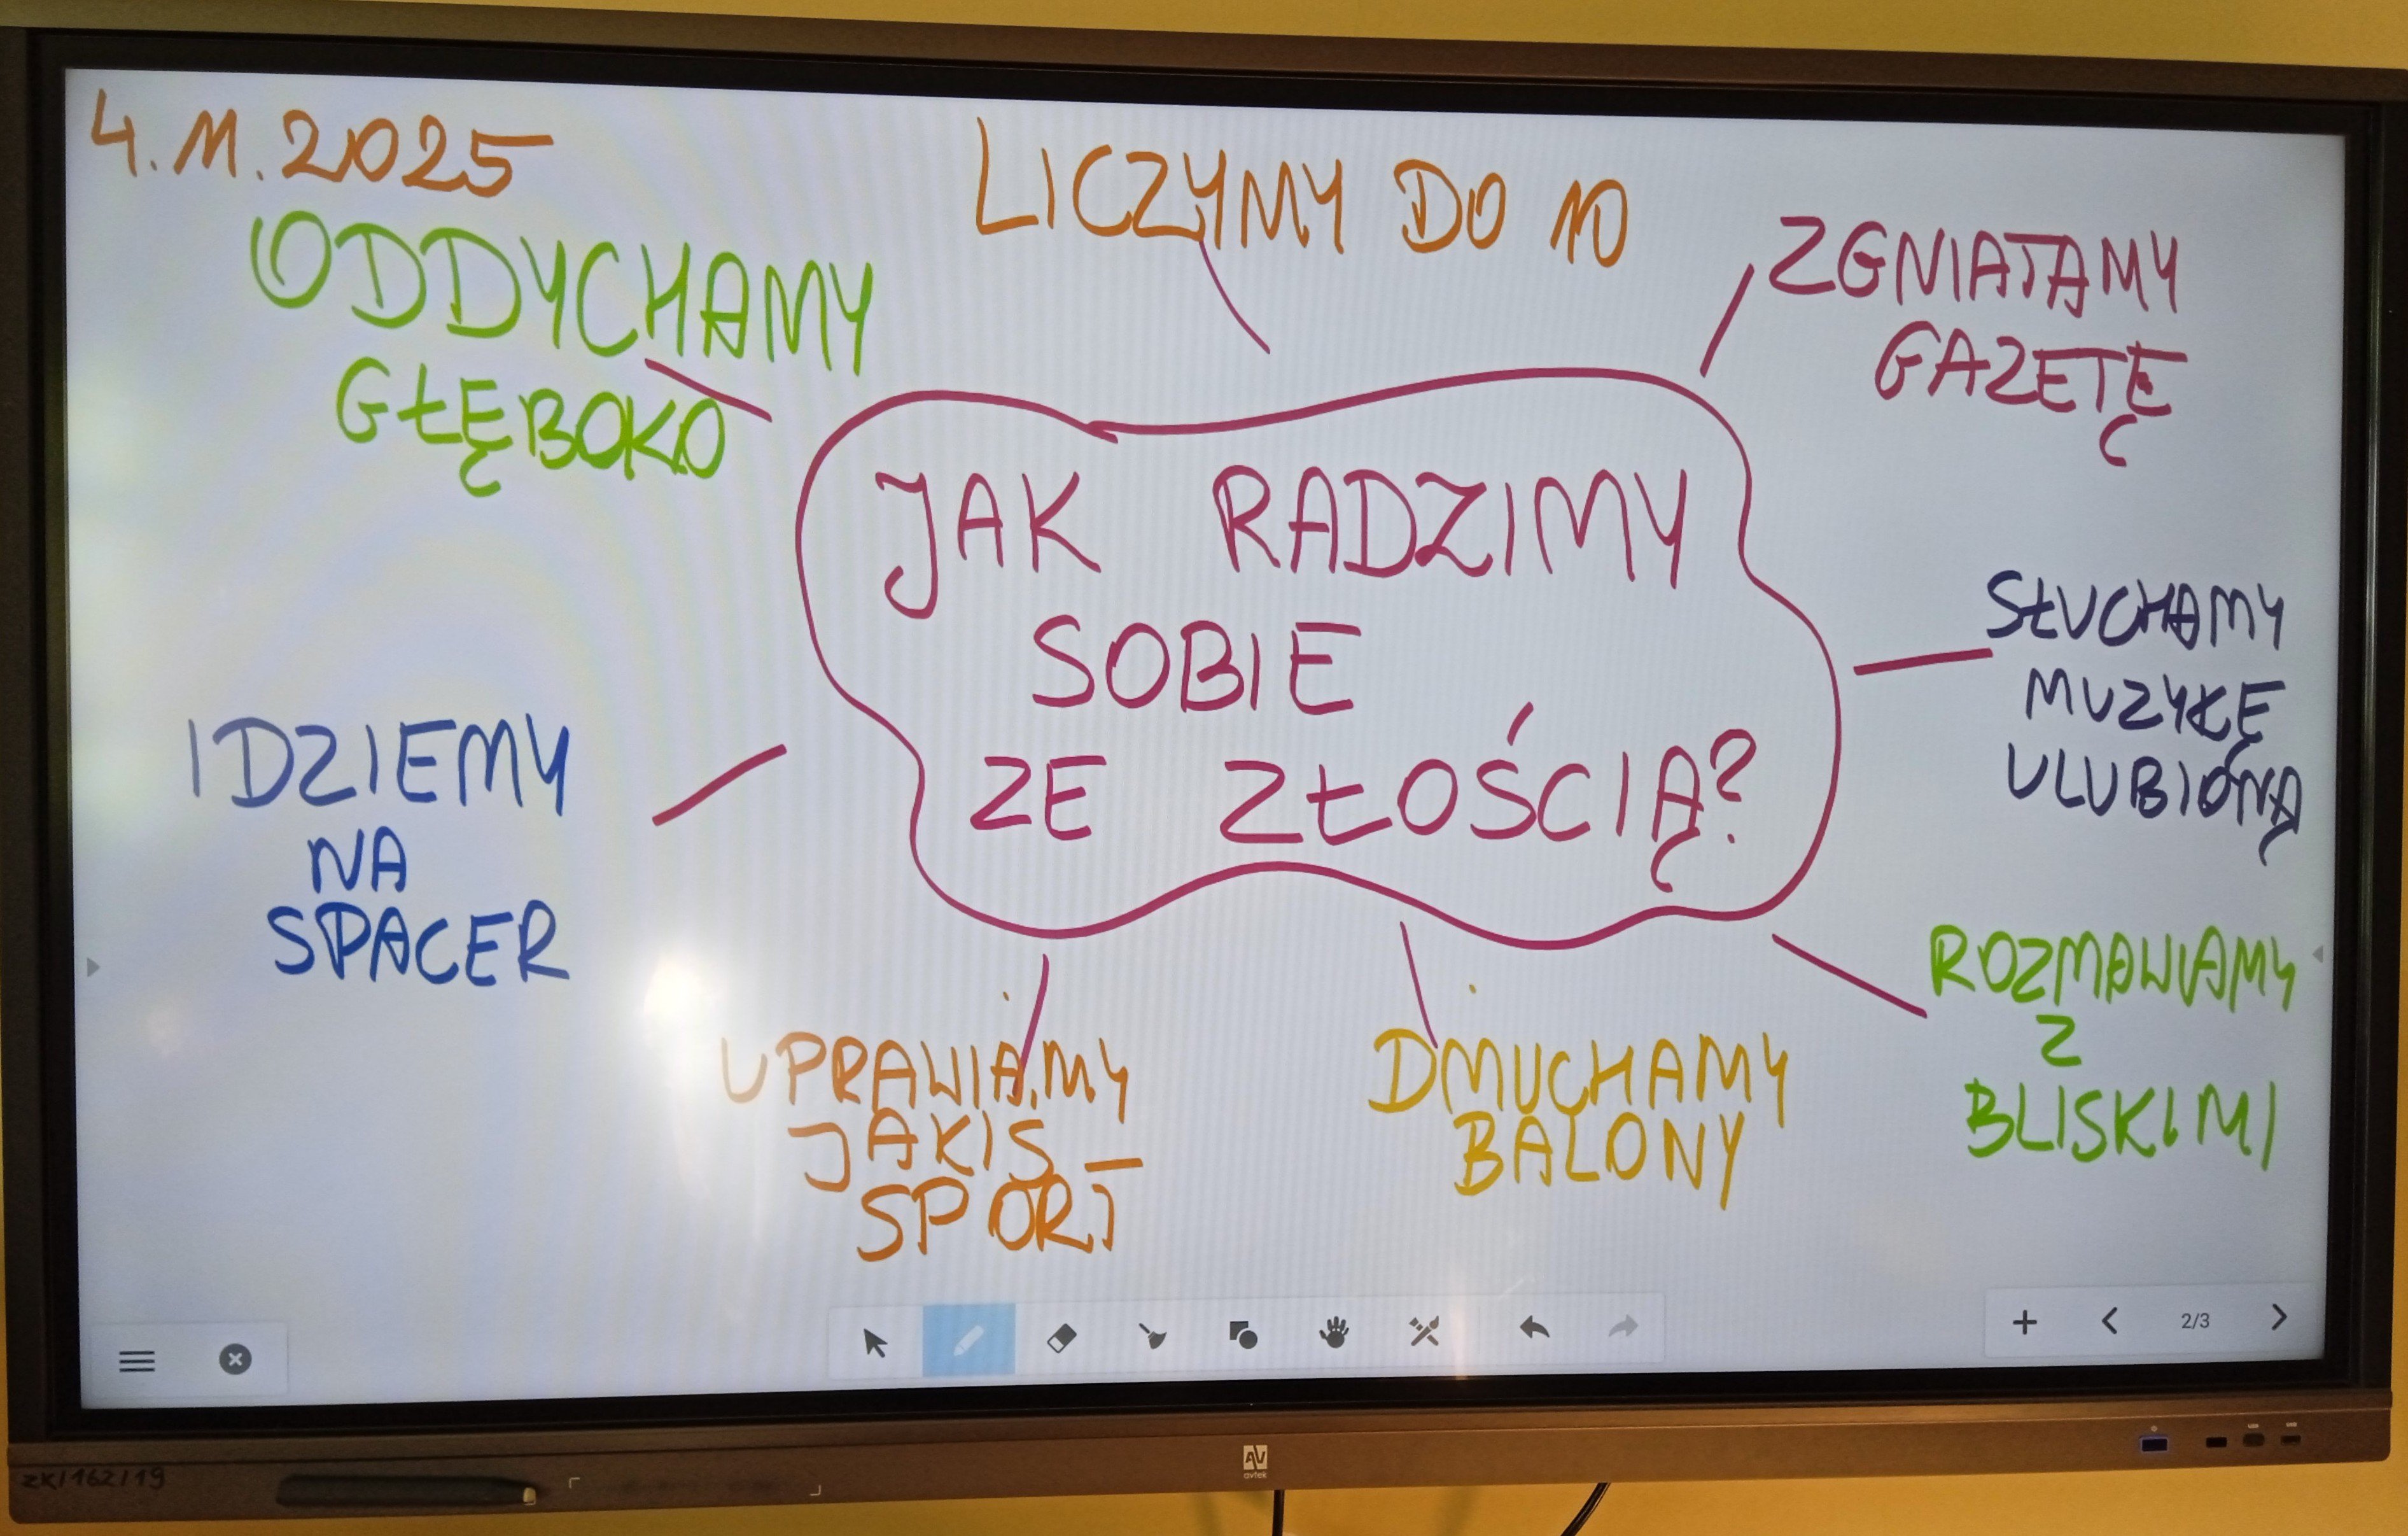 4.11.2025
LICZYMY DO 10
ODDYCHAMY
GŁĘBOKO
ZGNIATAMY
GAZETĘ
JAK RADZIMY
SOBIE
ZE ZŁOŚCIĄ?
SŁUCHAMY
MUZYKĘ
ULUBIONĄ
IDZIEMY
NA
SPACER
ROZMAWIAMY
Z
BLISKIMI
UPRAWIAMY
JAKIŚ
SPORT
DMUCHAMY
BALONY
2/3
AV
avtek
ZK/162/19